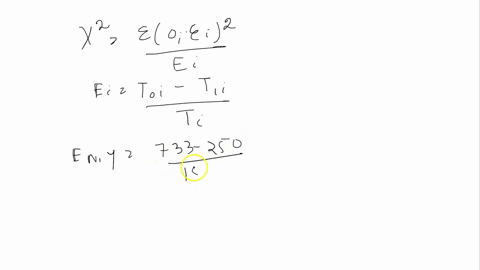 χ² = Σ(Oi - Ei)² / Ei
Ei = T0i - T1i / Ti
EN,Y = 733 - 250 / 10